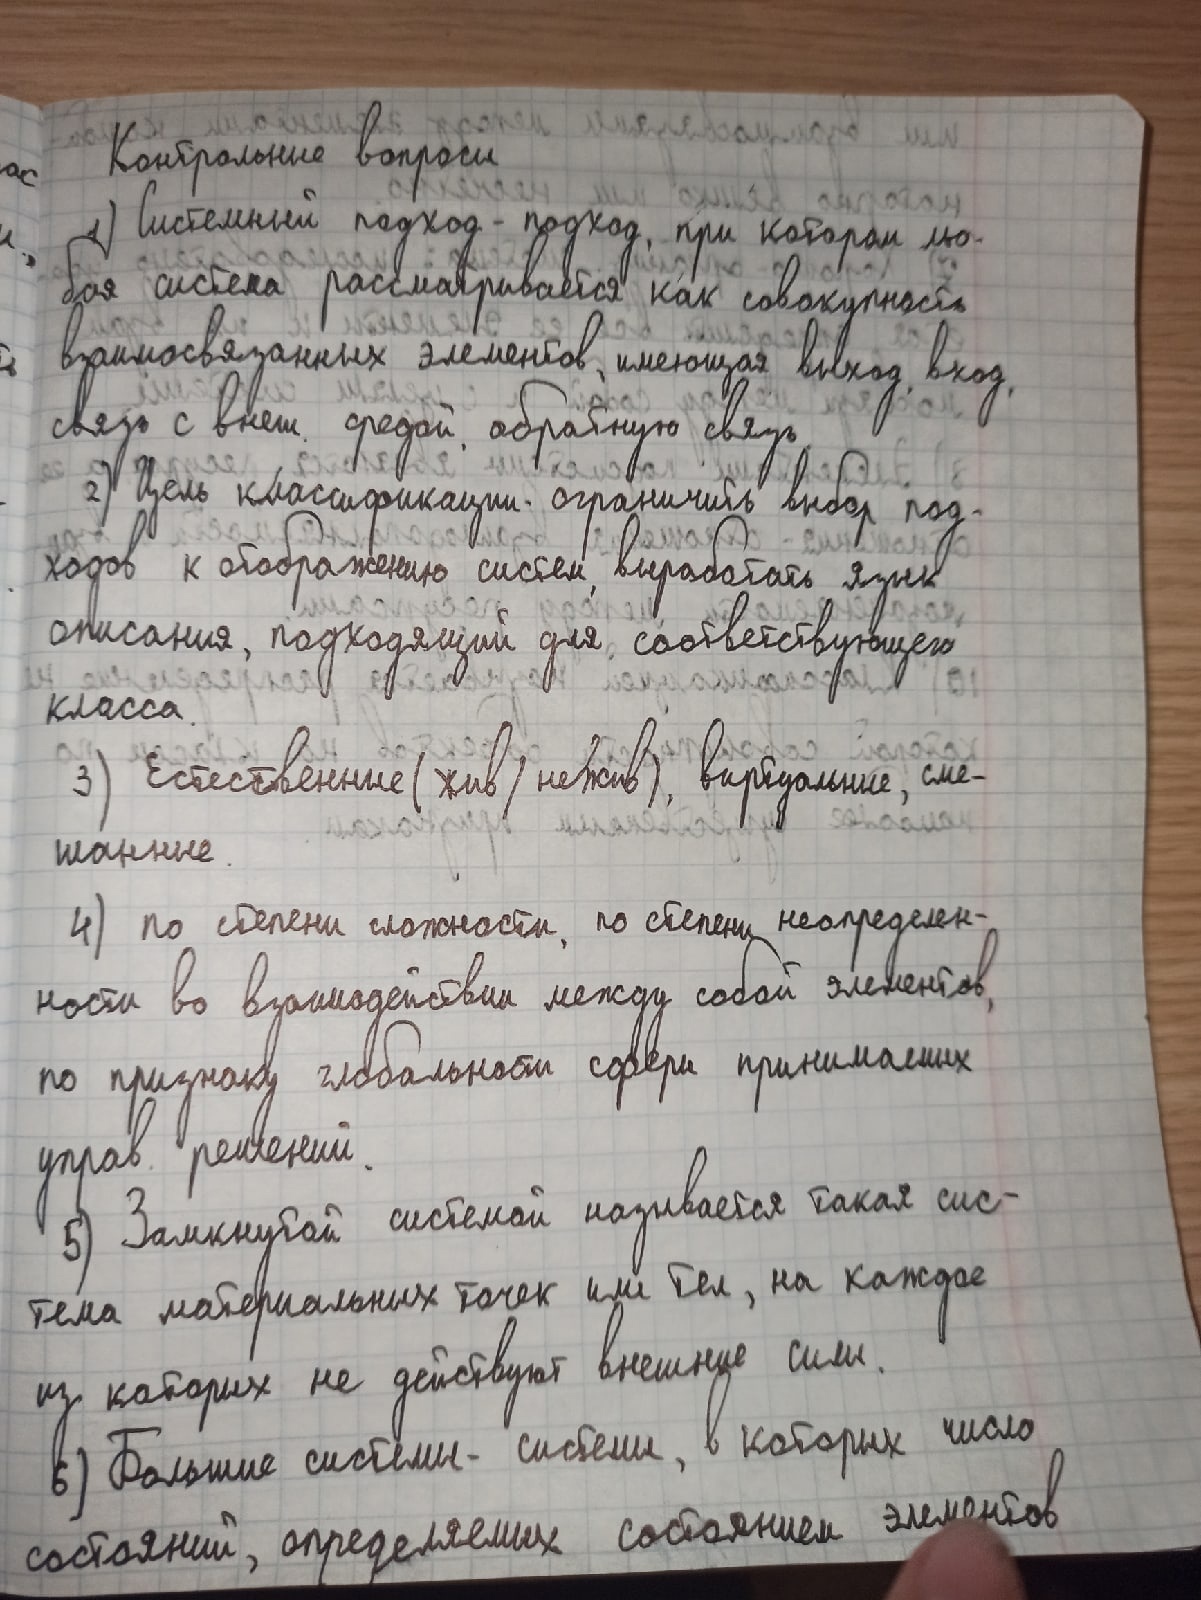 Контрольные вопросы
1) Системный подход - подход, при котором лю-
бая система рассматривается как совокупность
взаимосвязанных элементов, имеющая выход, вход,
связь с внеш. средой, обратную связь
2) Цель классификации - ограничить выбор под-
ходов к отображению систем, выработать язык
описания, подходящий для соответствующего
класса.
3) Естественные (жив / нежив), виртуальные, сме-
шанные.
4) по степени сложности, по степени неопределен-
ности во взаимодействии между собой элементов,
по признаку глобальности сферы принимаемых
управ. решений.
5) Замкнутой системой называется такая сис-
тема материальных точек или тел, на каждое
из которых не действуют внешние силы.
6) Большие системы - системы, в которых число
состояний, определяемых состоянием элементов